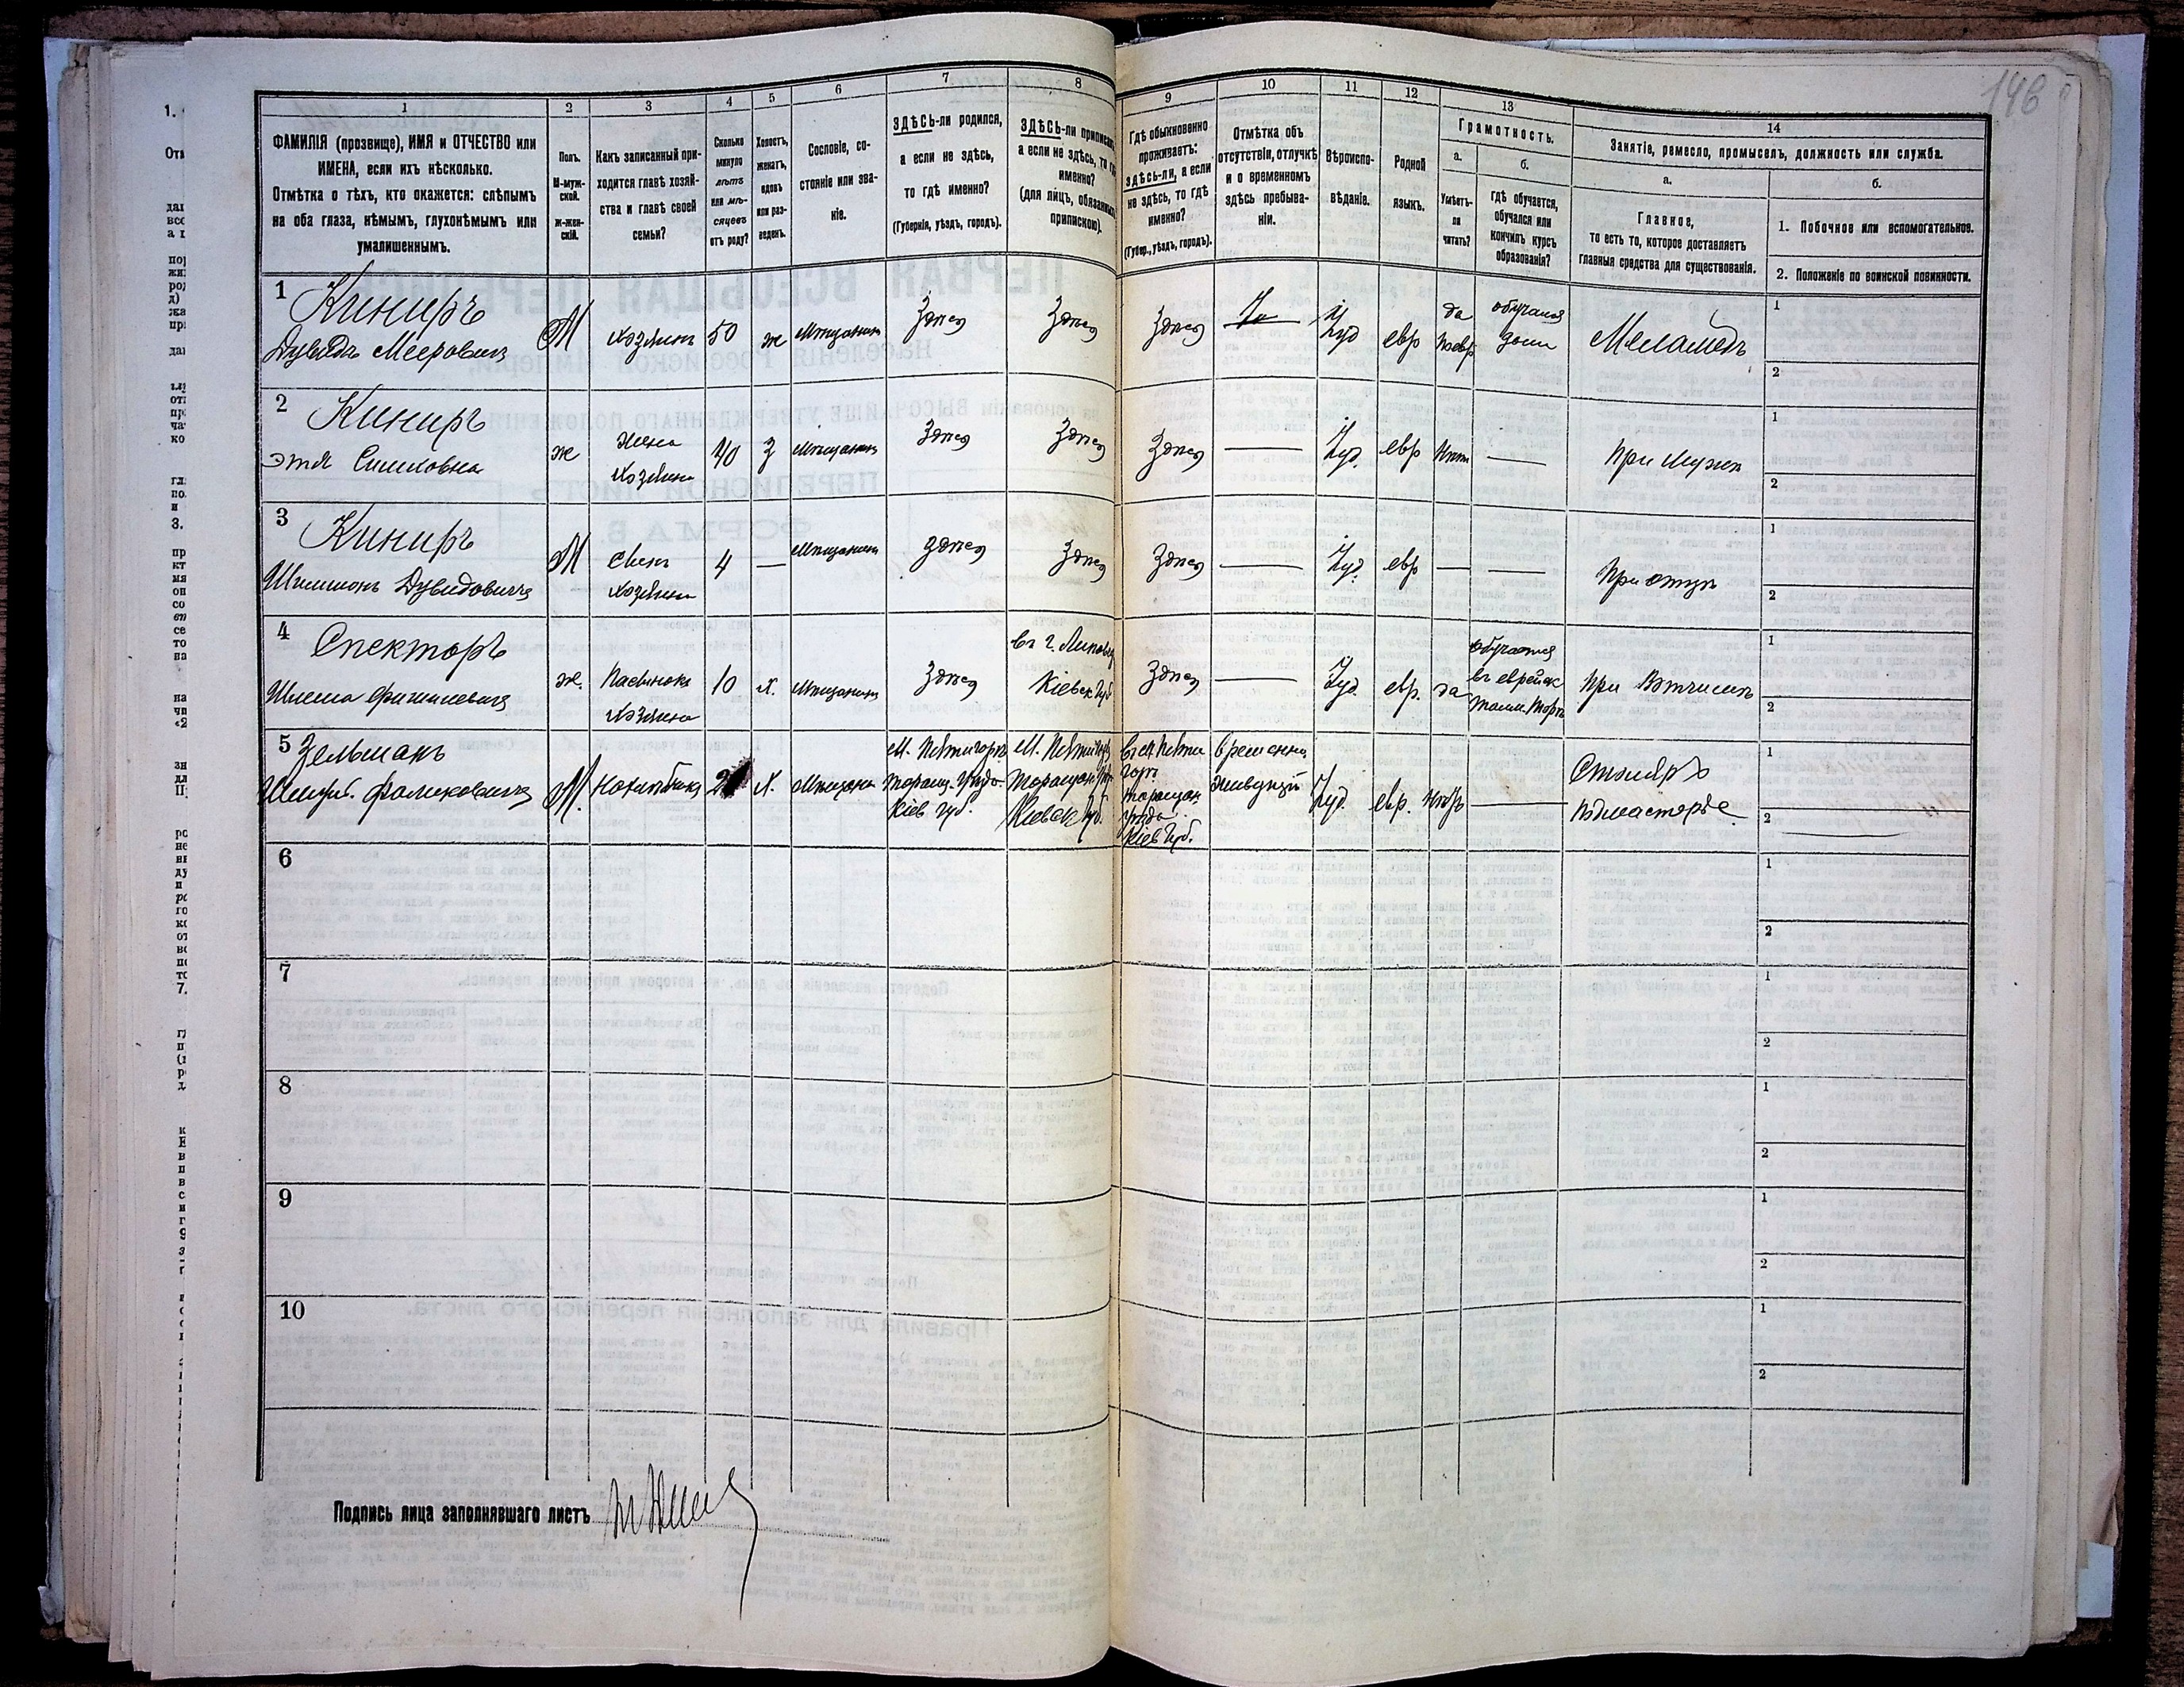 146
1
2
3
4
5
6
7
8
9
10
11
12
13
14
ФАМИЛІЯ (прозвище), ИМЯ и ОТЧЕСТВО или
ИМЕНА, если ихъ нѣсколько.
Отмѣтка о тѣхъ, кто окажется: слѣпымъ
на оба глаза, нѣмымъ, глухонѣмымъ или
умалишеннымъ.
Полъ.
М-муж-
ской.
Ж-жен-
скій.
Какъ записанный при-
ходится главѣ хозяй-
ства и главѣ своей
семьи?
Сколько
минуло
лѣтъ
или мѣ-
сяцевъ
отъ роду?
Холостъ,
женатъ,
вдовъ
или раз-
веденъ.
Сословіе, со-
стояніе или зва-
ніе.
ЗДѢСЬ-ли родился,
а если не здѣсь,
то гдѣ именно?
(Губернія, уѣздъ, городъ).
ЗДѢСЬ-ли приписанъ,
а если не здѣсь, то гдѣ
именно?
(для лицъ, обязанныхъ
припискою).
Гдѣ обыкновенно
проживаетъ:
здѣсь-ли, а если
не здѣсь, то гдѣ
именно?
(Губер., уѣздъ, городъ).
Отмѣтка объ
отсутствіи, отлучкѣ
и о временномъ
здѣсь пребыва-
ніи.
Вѣроиспо-
вѣданіе.
Родной
языкъ.
Грамотность.
а.
Умѣетъ-
ли
читать?
б.
гдѣ обучается,
обучался или
кончилъ курсъ
образованія?
Занятіе, ремесло, промыселъ, должность или служба.
а.
Главное,
то есть то, которое доставляетъ
главныя средства для существованія.
б.
1. Побочное или вспомогательное.
2. Положеніе по воинской повинности.
1 Киниръ
Дувидъ Мееровичъ
М
хозяинъ
50
ж
Мѣщанинъ
Здѣсь
Здѣсь
Здѣсь
Іуд
евр
да
по евр
обучался
дома
Меламедъ
1
2
2 Киниръ
Этя
ж
жена
хозяина
40
З
Мѣщанинъ
Здѣсь
Здѣсь
Здѣсь
—
Іуд.
евр
Нѣтъ
—
При Мужѣ
1
2
3 Киниръ
Дувидовичъ
М
Сынъ
хозяина
4
—
Мѣщанинъ
Здѣсь
Здѣсь
Здѣсь
—
Іуд.
евр
—
—
При отцѣ
1
2
4 Спекторъ
ж.
Пасынокъ
хозяина
10
х.
Мѣщанинъ
Здѣсь
въ г. Липовец
Кіевск Губ
Здѣсь
—
Іуд.
евр.
да
обучается
въ еврейск
талм. Торѣ
При Вотчимѣ
1
2
5 Зельманъ
М.
х.
М. Пятигоръ
таращ. уѣзд.
Кіев губ.
Таращан. у.
Кіевск губ.
таращан.
уѣзда
Кіев губ.
Временно
живущій
Іуд.
евр.
—
Столяръ
подмастерье
1
2
6
1
2
7
1
2
8
1
2
9
1
2
10
1
2
Подпись лица заполнявшаго листъ